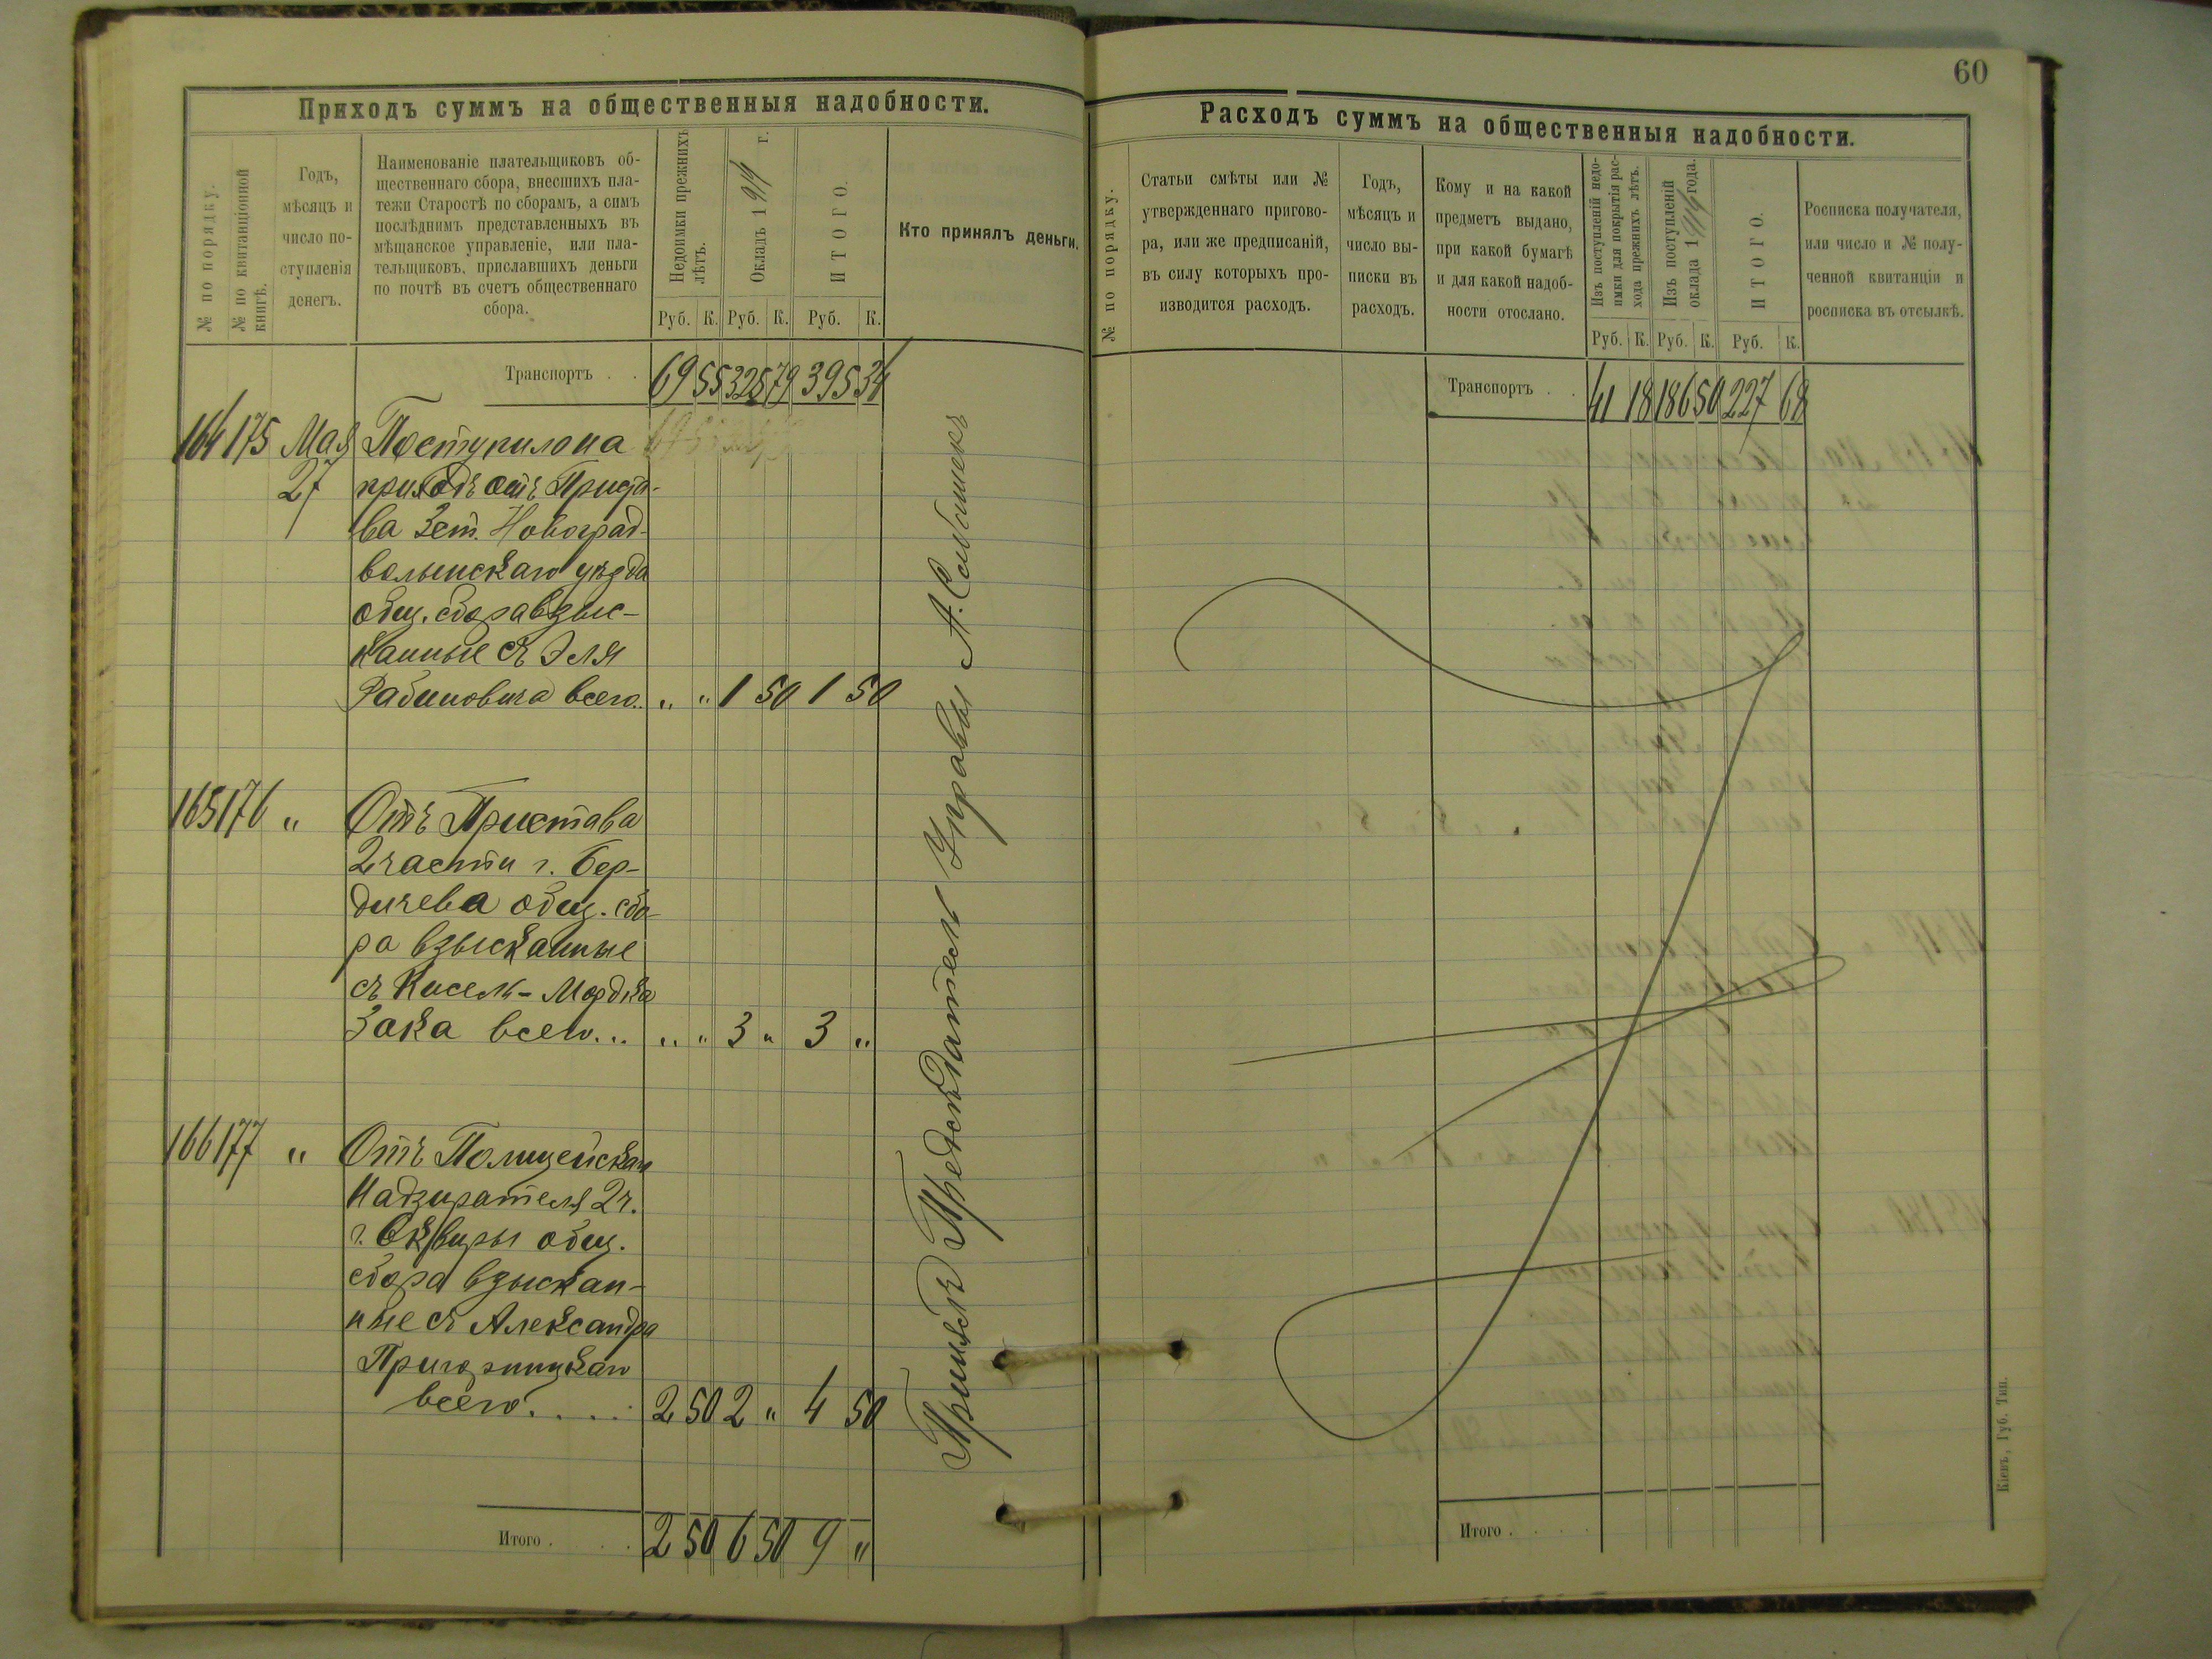 60
Приходъ суммъ на общественныя надобности.
№ по порядку.
№ по квитанціонной
книгѣ.
Годъ,
мѣсяцъ и
число по-
ступленія
денегъ.
Наименованіе плательщиковъ об-
щественнаго сбора, внесшихъ пла-
тежи Старостѣ по сборамъ, а симъ
послѣднимъ представленныхъ въ
мѣщанское управленіе, или пла-
тельщиковъ, приславшихъ деньги
по почтѣ въ счетъ общественнаго
сбора.
Недоимки прежнихъ
лѣтъ.
Окладъ 1914 г.
ИТОГО.
Кто принялъ деньги.
Руб. К. Руб. К. Руб. К.
Транспортъ . . 69 55 325 79 395 34
164 175 Мая Поступило на
27 приходъ отъ Приста-
ва 3 ст. Новоград-
волынскаго уѣзда
общ. сбора взыс-
канные съ Эля
Рабиновича всего.. „ „ 1 50 1 50
165 176 „ Отъ Пристава
2 части г. Бер-
дичева общ. сбо-
ра взысканные
съ Кисель-Мордка
Зака всего... „ „ 3 „ 3 „
166 177 „ Отъ Полицейскаго
Надзирателя 2 ч.
г. Сквиры общ.
сбора взыскан-
ные съ Александра
всего. . . . . 2 50 2 „ 4 50
Итого . . . . . 2 50 6 50 9 „
Принялъ Председатель Управы А.
Расходъ суммъ на общественныя надобности.
№ по порядку.
Статьи смѣты или №
утвержденнаго пригово-
ра, или же предписаній,
въ силу которыхъ про-
изводится расходъ.
Годъ,
мѣсяцъ и
число вы-
писки въ
расходъ.
Кому и на какой
предметъ выдано,
при какой бумагѣ
и для какой надоб-
ности отослано.
Изъ поступленій недо-
имки для покрытія рас-
хода прежнихъ лѣтъ.
Изъ поступленій
оклада 1914 года.
ИТОГО.
Росписка получателя,
или число и № полу-
ченной квитанціи и
росписка въ отсылкѣ.
Руб. К. Руб. К. Руб. К.
Транспортъ . . 41 18 186 50 227 68
Итого . . . .
Кіевъ, Губ. Тип.